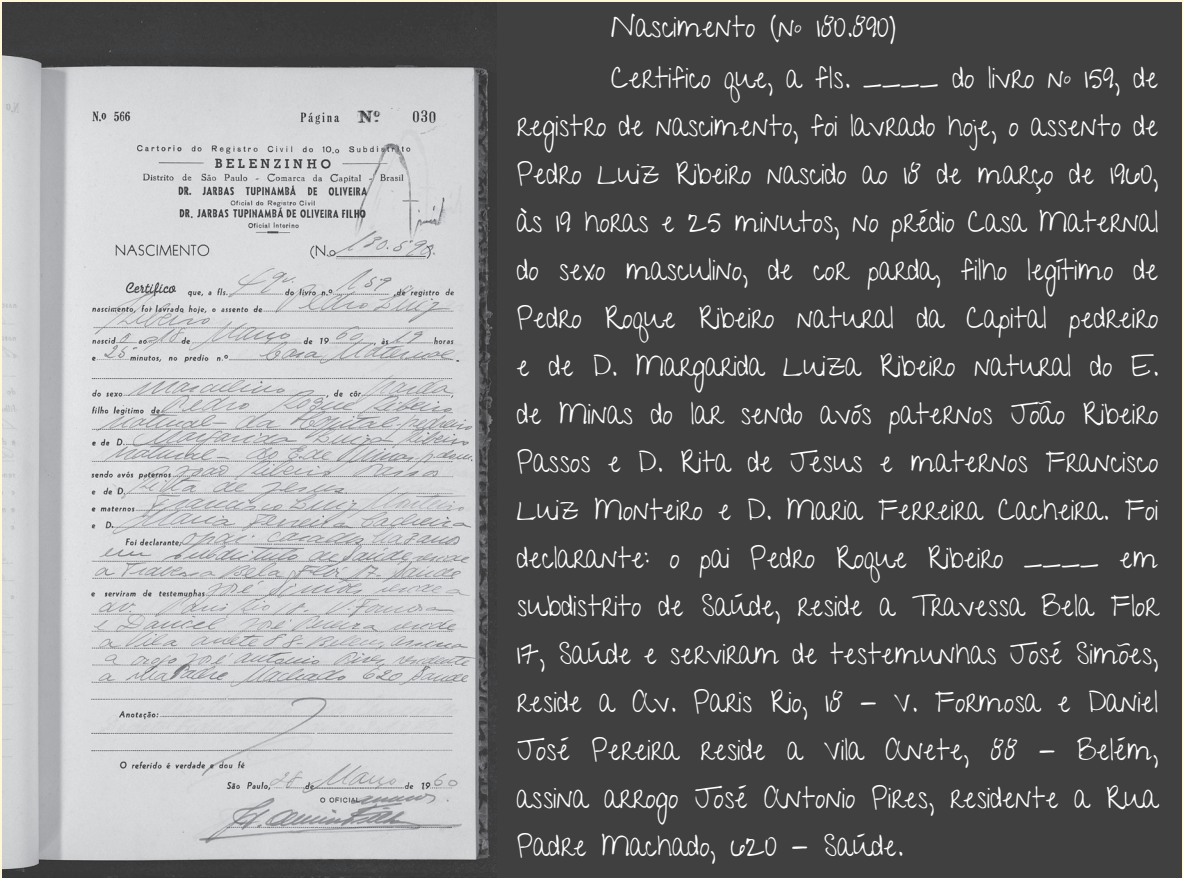 N.o 566 Página Nº 030
Cartorio do Registro Civil do 10.o Subdistrito
BELENZINHO
Distrito de São Paulo - Comarca da Capital - Brasil
DR. JARBAS TUPINAMBÁ DE OLIVEIRA
Oficial do Registro Civil
DR. JARBAS TUPINAMBÁ DE OLIVEIRA FILHO
Oficial Interino
NASCIMENTO (N.o 180.890).
Certifico que, a fls. do livro n.o 159 ,de registro de
nascimento, foi lavrado hoje, o assento de Pedro Luiz
Ribeiro
nascid o ao 18 de Março de 19 60, às 19 horas
e 25 minutos, no predio n.o Casa Maternal.
do sexo masculino , de côr parda,
filho legítimo de Pedro Roque Ribeiro
natural da Capital pedreiro
e de D. Margarida Luiza Ribeiro
natural do E. de Minas
sendo avós paternos João Ribeiro Passos
e de D. Rita de Jesus
e maternos Francisco Luiz Monteiro
e D. Maria Ferreira Cacheira
Foi declarante, o pai
em subdistrito de Saúde, reside
a Travessa Bela Flor 17, Saude
e serviram de testemunhas José Simões reside a
av. Paris Rio 18 V. Formosa
e Daniel José Pereira reside
a Vila anete 88 Belem, assina
a rogo José Antonio Pires, residente
a Rua Padre Machado 620 Saude
Anotação:
O referido é verdade e dou fé
São Paulo, 28 de Março de 19 60
O OFICIAL
Nascimento (Nº 180.890)
Certifico que, a fls. ____ do livro Nº 159, de
registro de nascimento, foi lavrado hoje, o assento de
Pedro Luiz Ribeiro nascido ao 18 de março de 1960,
às 19 horas e 25 minutos, no prédio Casa Maternal
do sexo masculino, de cor parda, filho legítimo de
Pedro Roque Ribeiro natural da Capital pedreiro
e de D. Margarida Luiza Ribeiro natural do E.
de Minas do lar sendo avós paternos João Ribeiro
Passos e D. Rita de Jesus e maternos Francisco
Luiz Monteiro e D. Maria Ferreira Cacheira. Foi
declarante: o pai Pedro Roque Ribeiro ____ em
subdistrito de Saúde, reside a Travessa Bela Flor
17, Saúde e serviram de testemunhas José Simões,
reside a Av. Paris Rio, 18 – V. Formosa e Daniel
José Pereira reside a vila Anete, 88 – Belém,
assina arrogo José Antonio Pires, residente a Rua
Padre Machado, 620 – Saúde.